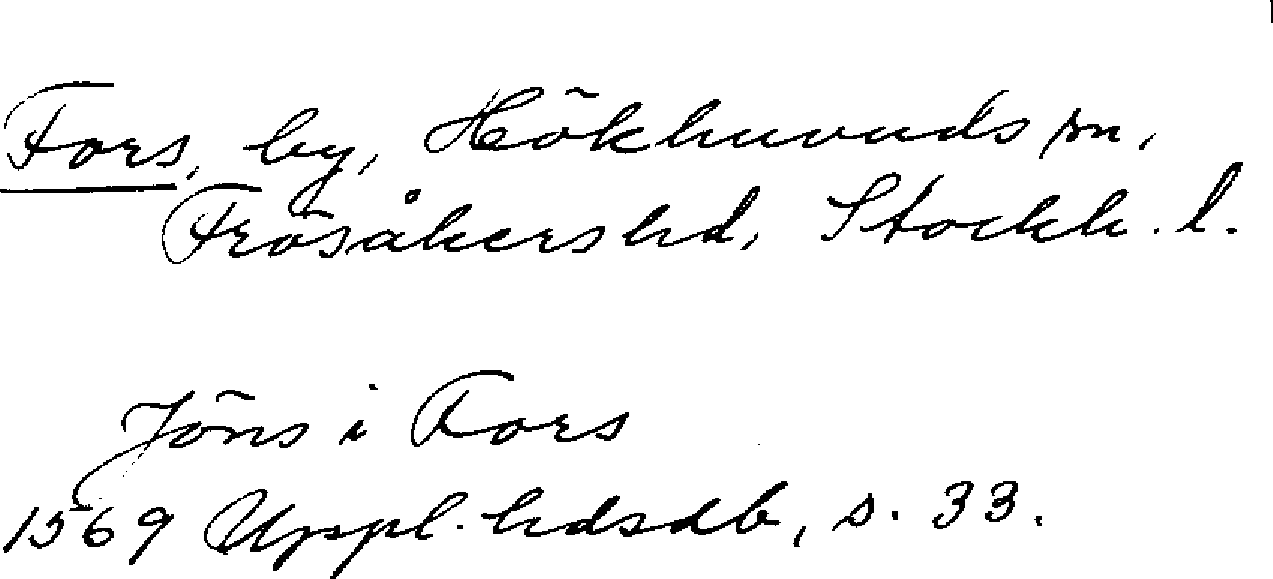 Fors, by, Hökhuvuds sn,
Frösåkers hd, Stockh. l.
Jöns i Fors
1569 Uppl. hdsdb, s. 33.